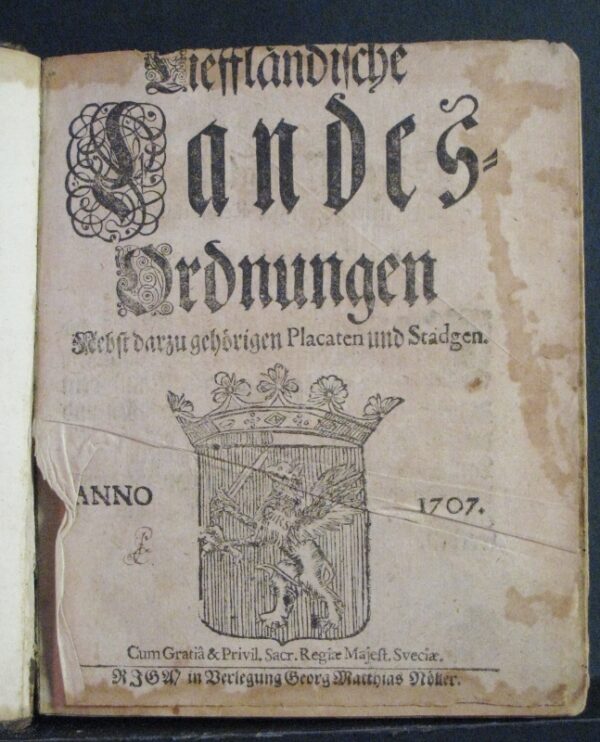 Liefflåndische
Landes-
Ordnungen
Nebst darzu gehörigen Placaten und Stadgen.
ANNO 1707.
Cum Gratiâ & Privil. Sacr. Regiæ Majest. Sveciæ.
RIGA/ in Verlegung Georg Matthias Nöller.